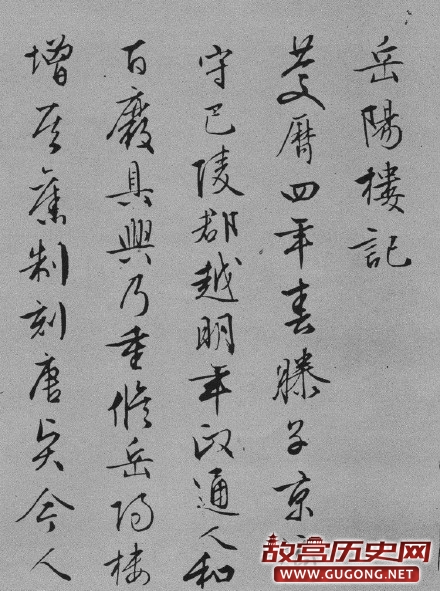 岳陽樓記
慶曆四年春滕子京
守巴陵郡越明年政通人和
百廢具興乃重脩岳陽樓
增其舊制刻唐賢今人
故宫历史网
WWW.GUGONG.NET